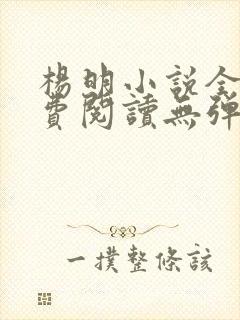 楊明小說全
費閱讀無彈
一撲整條該